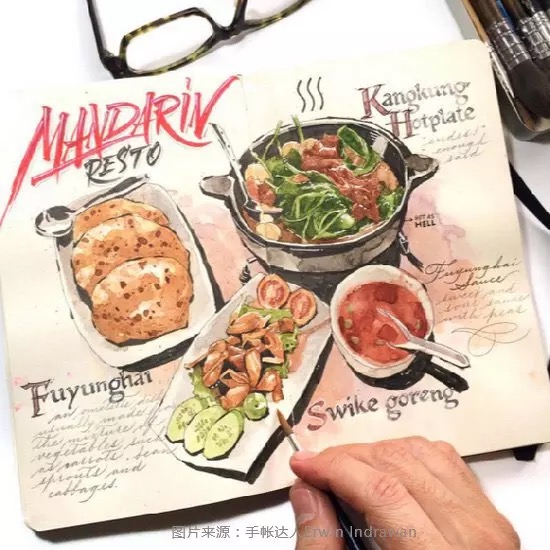 MANDARIN
RESTO
Kangkung
Hotplate
"endess"
enough
said
HOT AS
HELL
Fuyunghai
Sauce
sweet and
sour sauce
with peas
Fuyunghai
an omelette dish
usually made from
the mixture of
vegetables such
as carrots, bean
sprouts and
cabbages.
Swike goreng
图片来源:手帐达人Erwin Indrawan